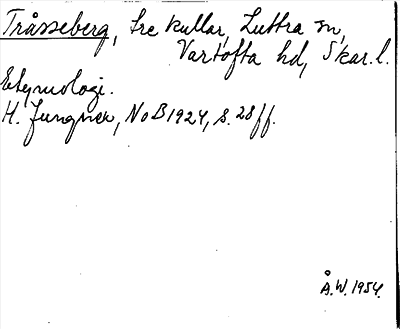 Tråsseberg, tre kullar, Luttra sn,
Vartofta hd, Skar. l.
Etymologi.
H. Jungner, NoB 1924, s. 28 ff.
Å.W. 1954.